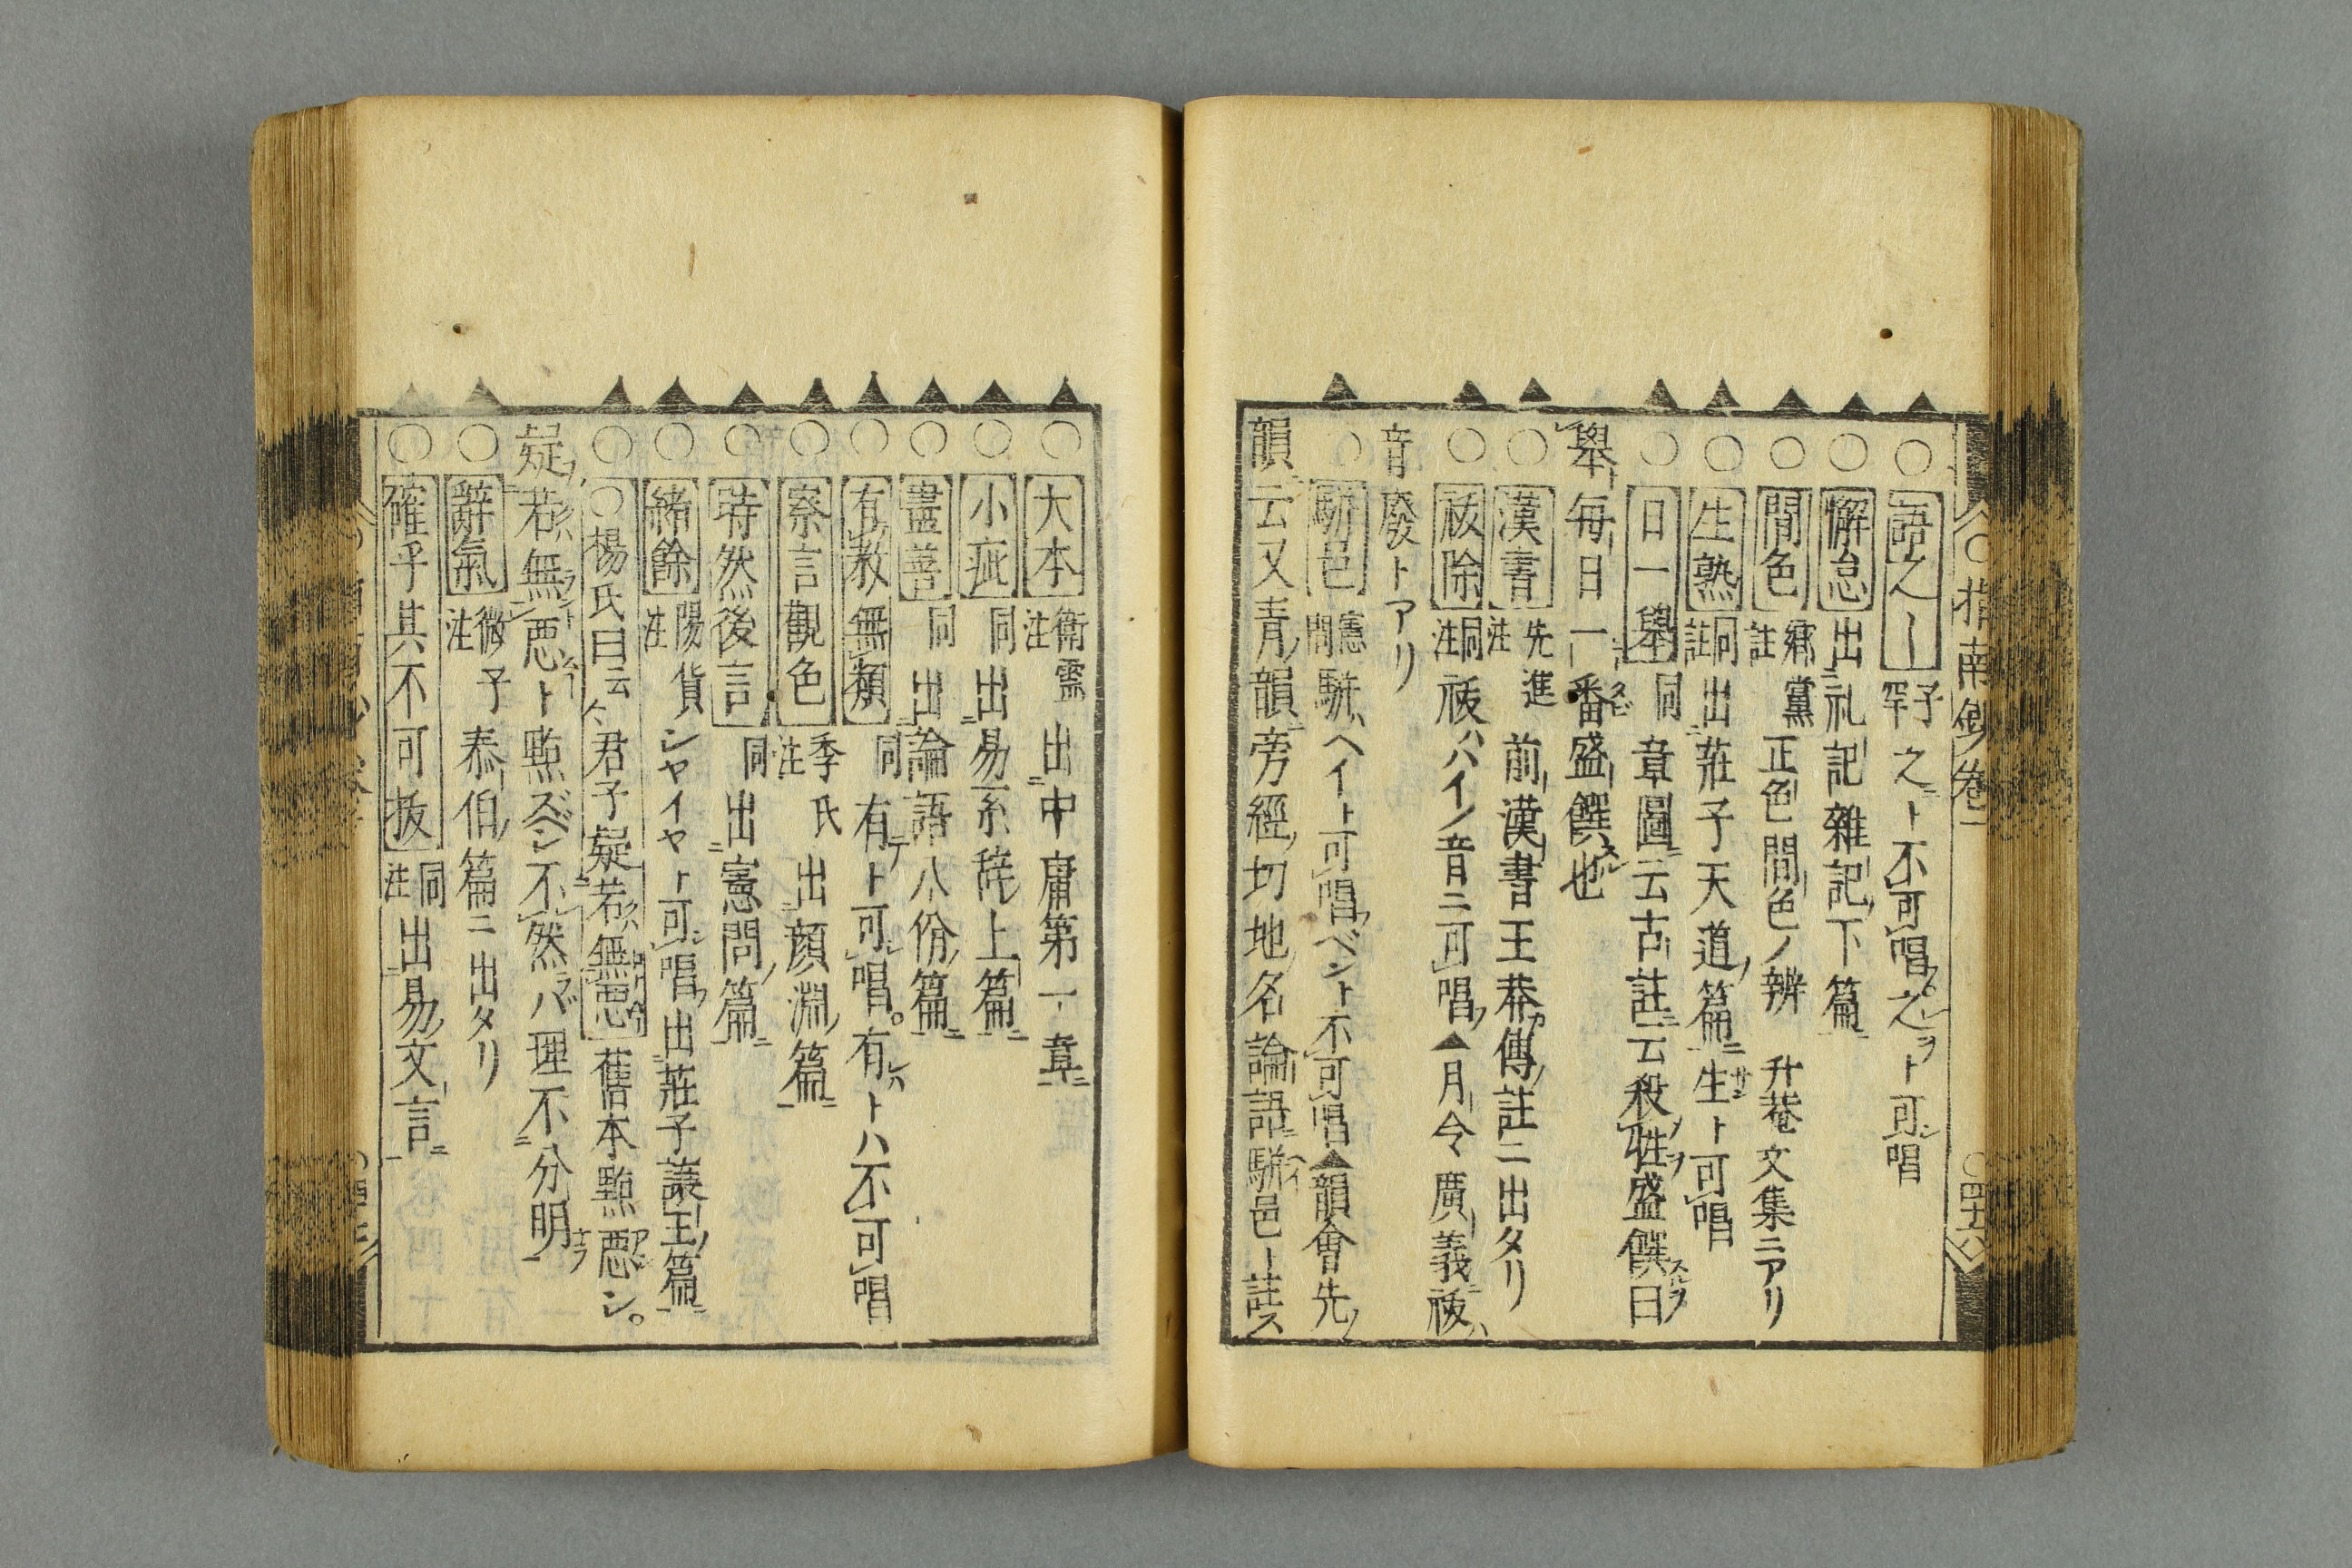 ○語之ー 子罕 之ト不可唱。之ヲト可唱
○懈怠 出礼記雜記下篇
○間色 郷黨註 正色間色ノ辨 升菴文集ニアリ
○生熟 同註 出莊子天道篇ニ生サントト可唱
○日一舉 同 章圖云古註云殺牲盛饌曰
舉毎日一番盛饌也
○漢書 先進注 前漢書王莽傳註ニ出タリ
○祓除 同注 祓ハハイノ音ニ可唱▲月令廣義祓
音廢トアリ
○駢邑 憲問 駢ハヘイト可唱ベントト不可唱▲韻會先
韻云又青韻旁經切地名論語駢邑ト註ス
指南鈔卷一
○大本 衛霊注 出中庸第一章
○小疵 同 出易系辞上篇
○盡善 同 出論語八佾篇
○有教無類 同 有テト可唱。有レハトハ不可唱
○察言觀色 季氏注 出顔淵篇
○時然後言 同 出憲問篇
○緒餘 陽貨注 シヤイヤト可唱出莊子讓王篇
○○楊氏曰云々君子疑若無惡 舊本點惡シ。
疑若無惡ト點ズベシ不然バ理不分明
○辭氣 微子注 泰伯篇ニ出タリ
○確乎其不可拔 同注 出易文言